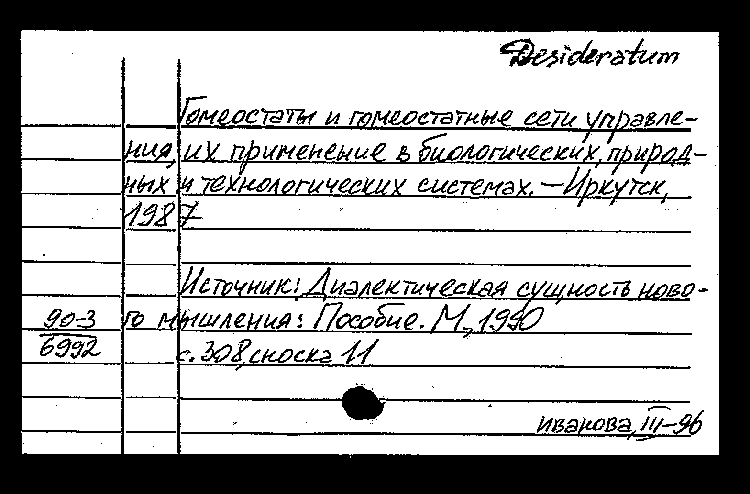 Desideratum
Гомеостаты и гомеостатные сети управле-
ния, их применение в биологических, природ-
ных и технологических системах. — Иркутск,
1987
Источник: Диалектическая сущность ново-
90-3 го мышления: Пособие. М., 1990
6992 с. 308, сноска 11
иванова, III-96